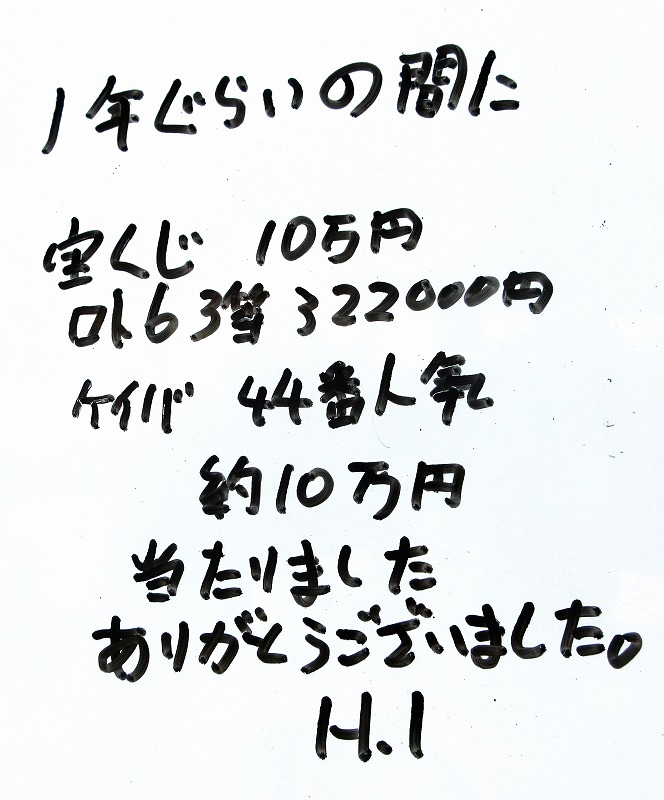 1年ぐらいの間に
宝くじ 10万円
ロト6 3等 322000円
ケイバ 44番人気
約10万円
当たりました
ありがとうございました。
H.I